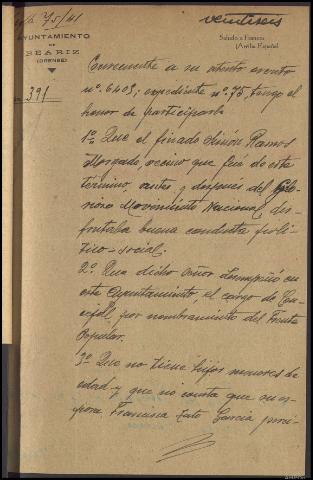 75/41
veintiseis
AYUNTAMIENTO
DE
BEARIZ
(ORENSE)
Saludo a Franco:
¡Arriba España!
391
Consecuente a su atento escrito
nº 6403, expediente nº 75, tengo el
honor de participarle
1º. Que el finado Simón Ramos
Morgado, vecino que fué de este
termino, antes y después del Glo-
rioso Movimiento Nacional dis-
frutaba buena conducta poli-
tico-social.
2º. Que dicho señor desempeñó en
este Ayuntamiento el cargo de Con-
cejal, por nombramiento del Frente
Popular.
3º Que no tiene hijos menores de
edad y que no consta que su es-
posa Francisca Cato Garcia perci-